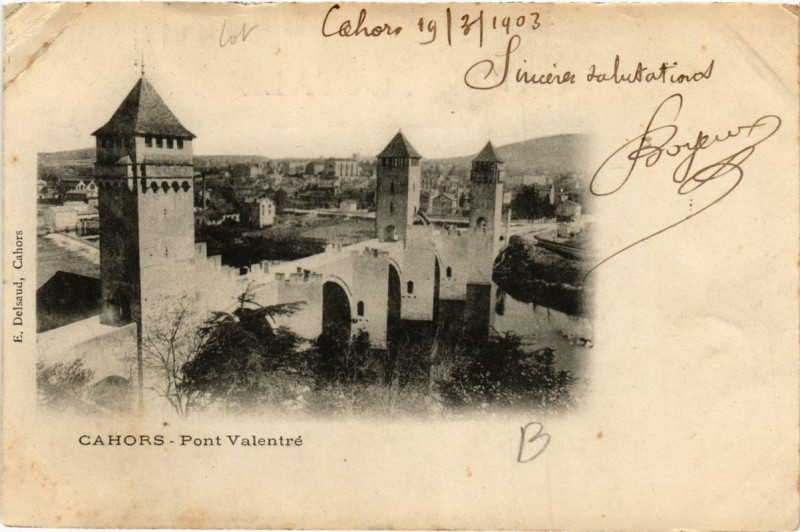 lot
Cahors 19/3/1903
Sincères salutations
Boyeux
E. Delsaud, Cahors
CAHORS - Pont Valentré
B